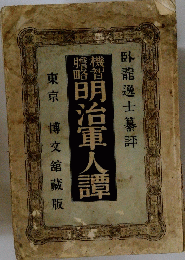 臥龍逸士纂評
機智
膽略
明治軍人譚
東京 博文舘藏版